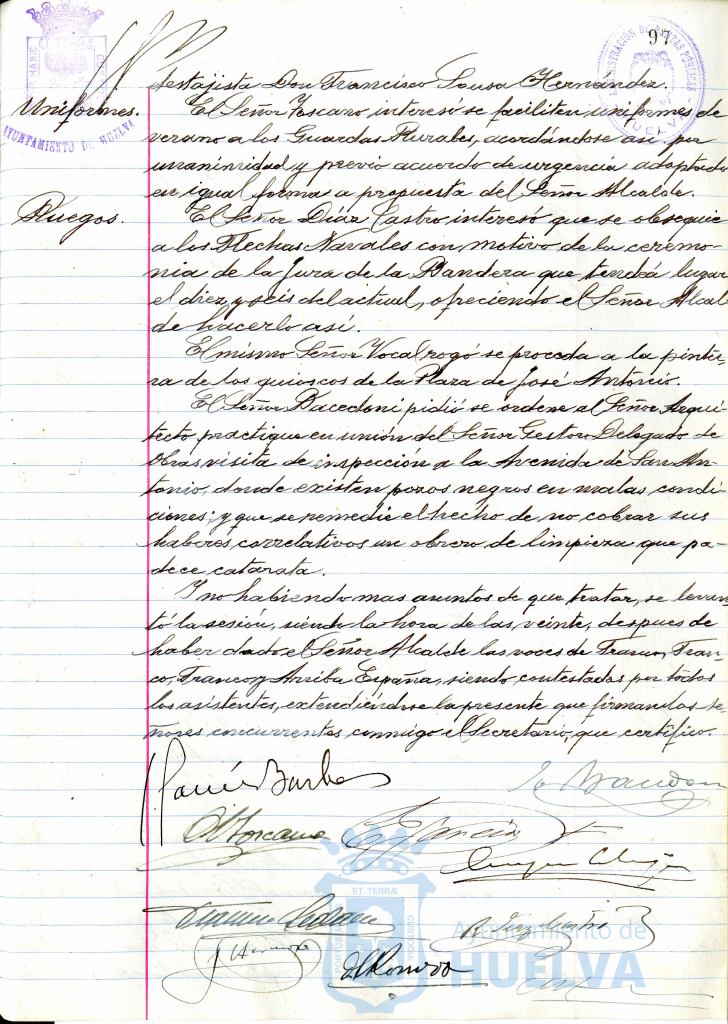 97
destajista Don Francisco Sousa Hernández.
Uniformes.
El Señor Toscano interesó se faciliten uniformes de
verano a los Guardas Rurales, acordándose así por
unanimidad y previo acuerdo de urgencia adoptado
en igual forma a propuesta del Señor Alcalde.
Ruegos.
El Señor Díaz Castro interesó que se obsequie
a los Flechas Navales con motivo de la ceremo-
nia de la Jura de la Bandera que tendrá lugar
el diez y seis del actual, ofreciendo el Señor Alcal-
de hacerlo así.
El mismo Señor Vocal rogó se proceda a la pintu-
ra de los quioscos de la Plaza de José Antonio.
El Señor Bacedoni pidió se ordene al Señor Arqui-
tecto practique en unión del Señor Gestor Delegado de
Obras visita de inspección a la Avenida de San An-
tonio, donde existen pozos negros en malas condi-
ciones; y que se remedie el hecho de no cobrar sus
haberes correlativos un obrero de limpieza que pa-
dece catarata.
Y no habiendo mas asuntos de que tratar, se levan-
tó la sesión, siendo la hora de las veinte, despues de
haber dado el Señor Alcalde las voces de Franco, Fran-
co, Franco y Arriba España, siendo contestadas por todos
los asistentes, extendiéndose la presente que firman los se-
ñores concurrentes conmigo el Secretario, que certifico.
AYUNTAMIENTO DE HUELVA
HUELVA
ET TERRÆ
PORTUS
CUSTODIA
Ayuntamiento de
HUELVA